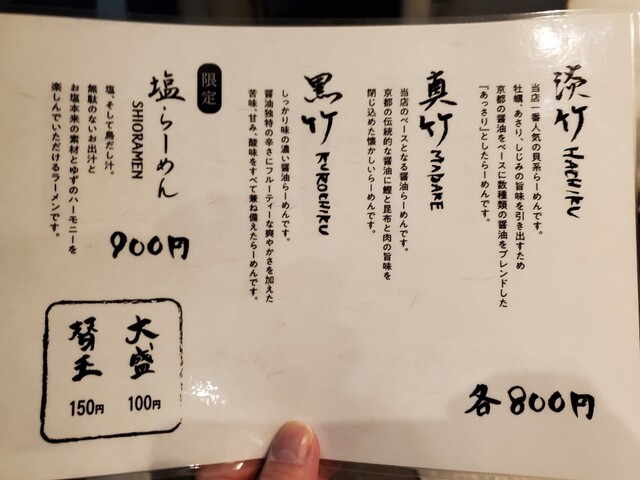 淡竹 HACHIKU
当店一番人気の貝系らーめんです。
牡蠣、あさり、しじみの旨味を引き出すため
京都の醤油をベースに数種類の醤油をブレンドした
『あっさり』としたらーめんです。
真竹 MADAKE
当店のベースとなる醤油らーめんです。
京都の伝統的な醤油に鰹と昆布と肉の旨味を
閉じ込めた懐かしいらーめんです。
黒竹 KUROCHIKU
しっかり味の濃い醤油らーめんです。
醤油独特の辛さにフルーティーな爽やかさを加えた
苦味、甘み、酸味をすべて兼ね備えたらーめんです。
各800円
限定
塩らーめん
SHIORAMEN
塩、そして鳥だし汁。
無駄のないお出汁と
お塩本来の素材とゆずのハーモニーを
楽しんでいただけるラーメンです。
900円
大盛 100円
替玉 150円